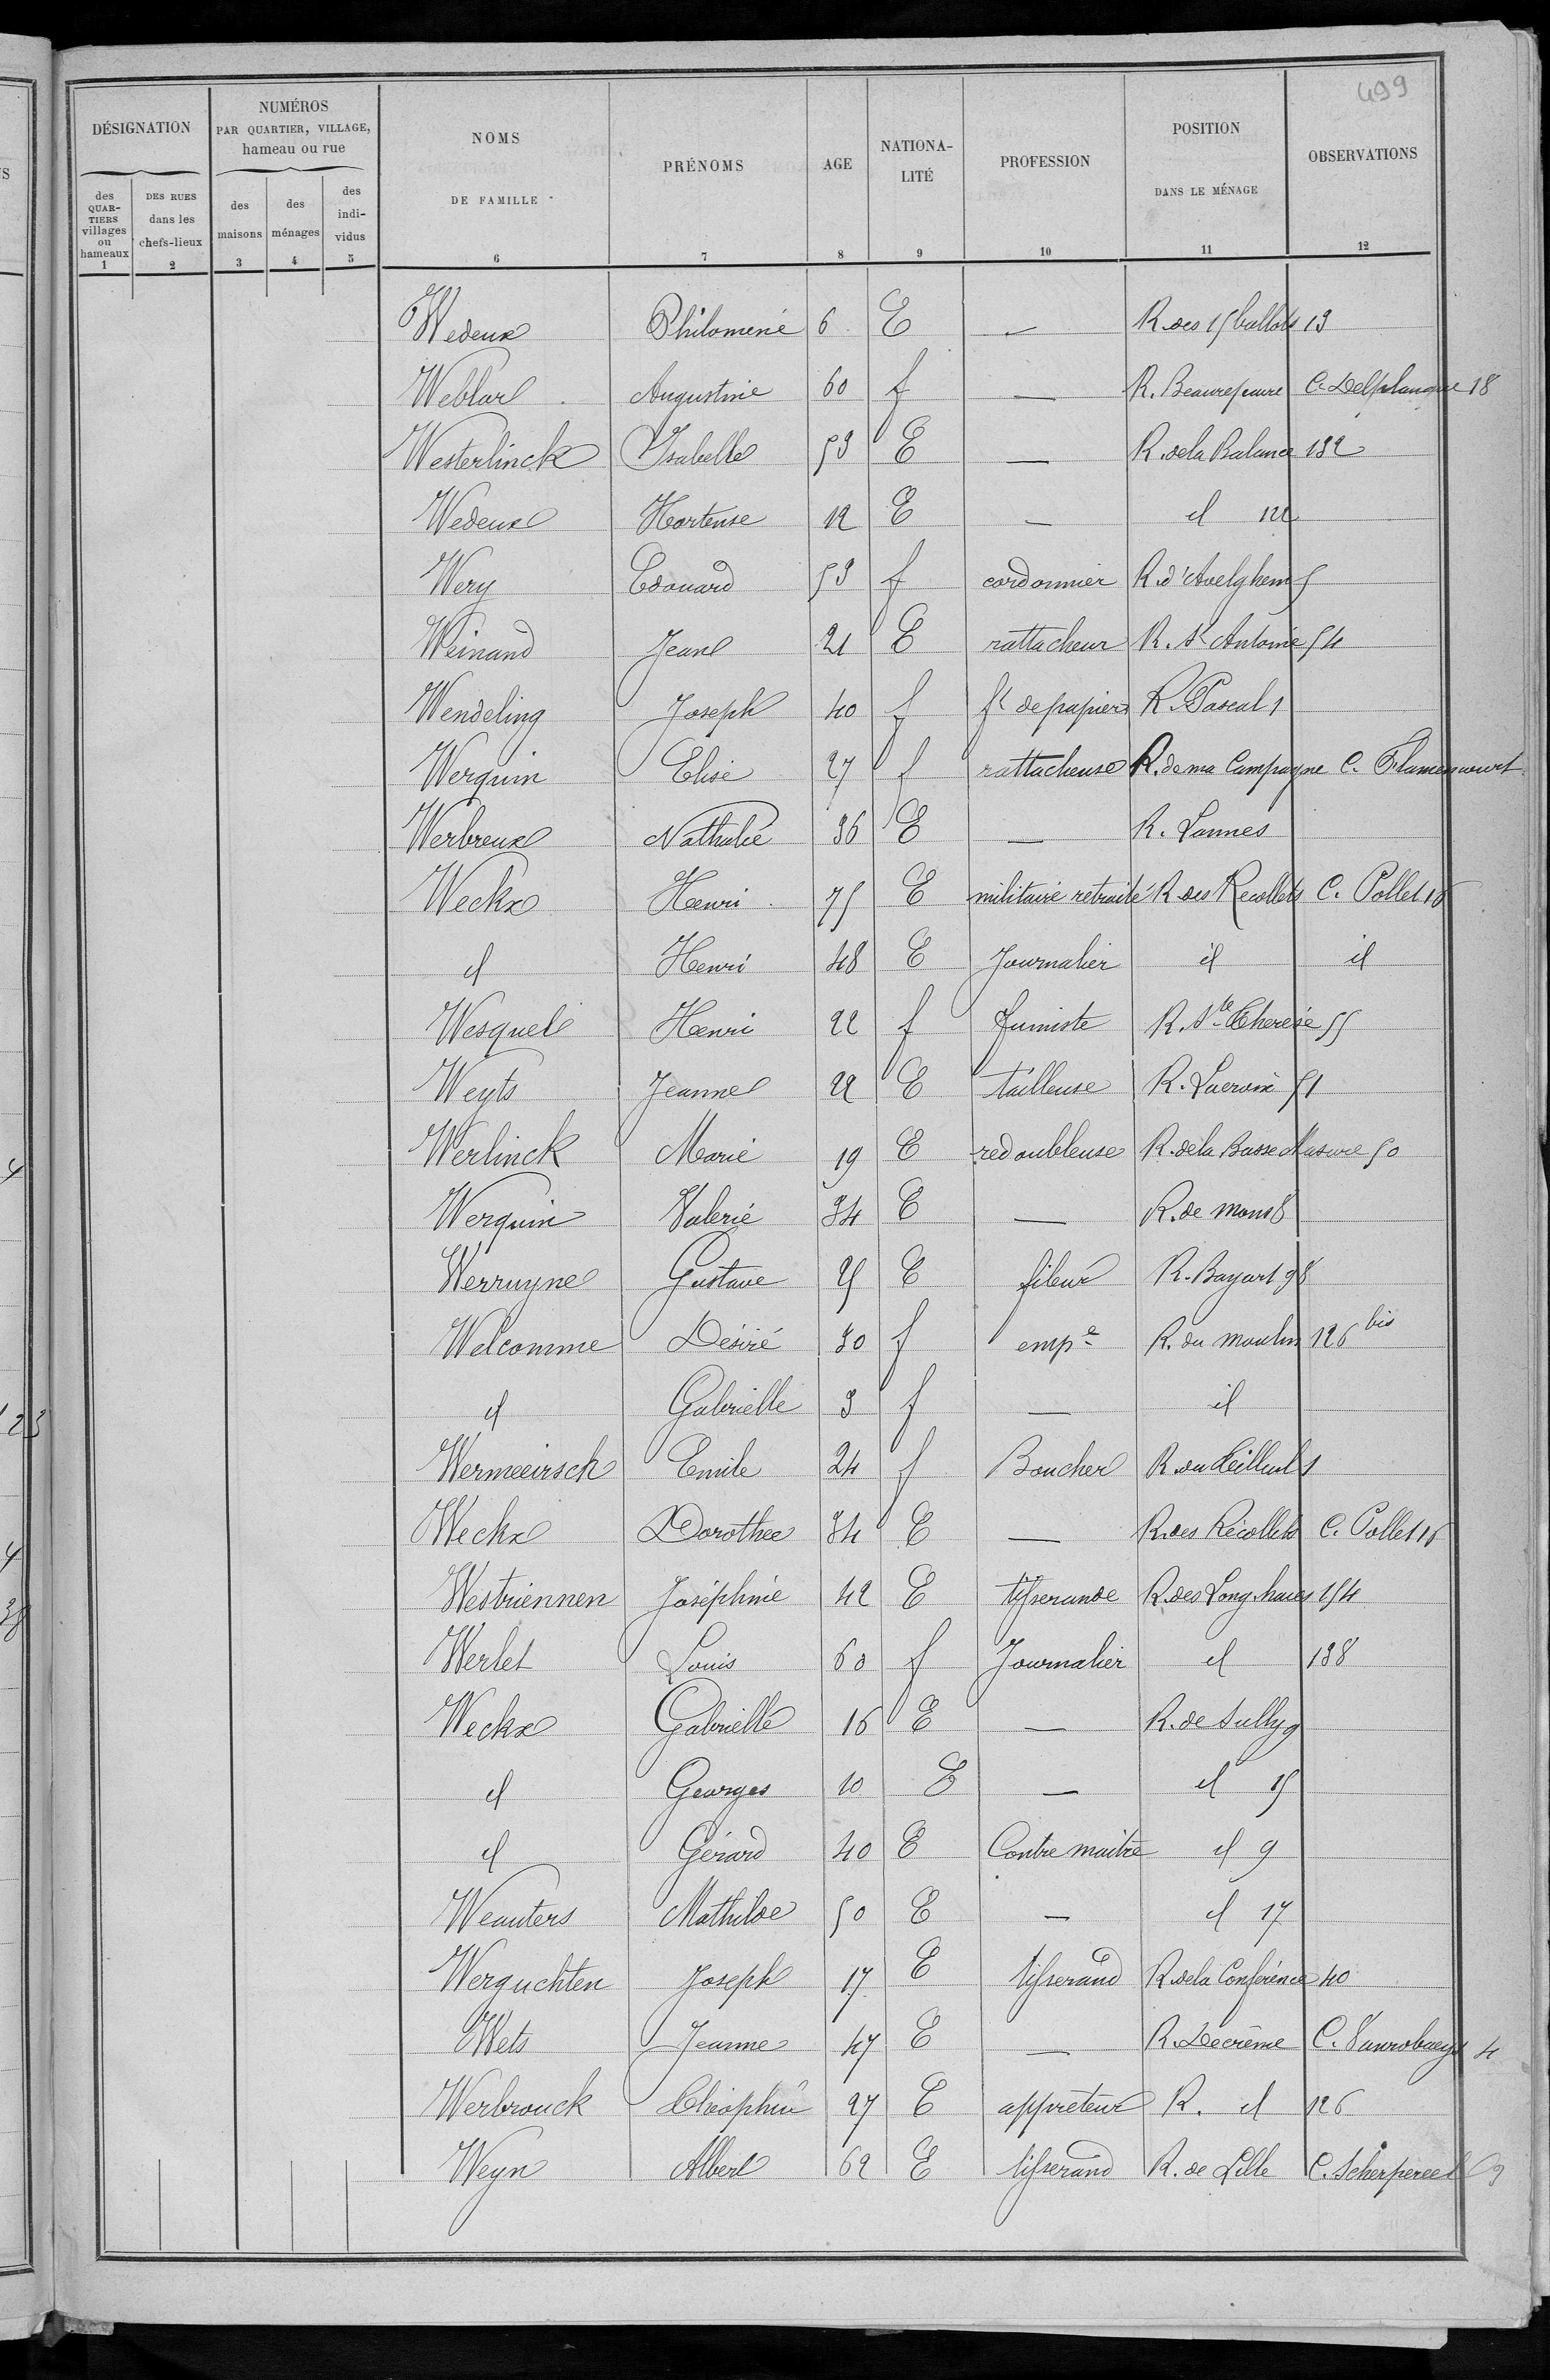 499
DÉSIGNATION
NUMÉROS PAR QUARTIER, VILLAGE, hameau ou rue
NOMS DE FAMILLE
PRÉNOMS
AGE
NATIONA-LITÉ
PROFESSION
POSITION DANS LE MÉNAGE
OBSERVATIONS
des QUAR-TIERS villages ou hameaux
DES RUES dans les chefs-lieux
des maisons
des ménages
des indi-vidus
1 2 3 4 5 6 7 8 9 10 11 12
Wedeux Philomène 6 E — R. des 15 ballots 19
Augustine 60 f — R. Beaurepaire C. Delplanque 18
Westerlinck Isabelle 59 E — R. de la Balance 132
Wedeux Hortense 12 E — id 122
Wery Edouard 59 f cordonnier R. d'Avelghem 5
Weinand Jean 21 E rattacheur R. St Antoine 54
Wendeling Joseph 40 f ft de papiers R. Pascal 1
Werquin Elise 27 f rattacheuse R. de ma Campagne C. Flamencourt
Werbreux Nathalie 36 E — R. Lannes
Weckx Henri 75 E militaire retraité R. des Recollets C. Pollet 16
id Henri 48 E Journalier id id
Wesquel Henri 22 f fumiste R. Ste Therese 55
Weyts Jeanne 22 E tailleuse R. Lacroix 51
Werlinck Marie 19 E redoubleuse R. de la Basse Masure 50
Werquin Valerie 34 E — R. de mons 8
Werruyne Gustave 25 E fileur R. Bayart 98
Welcomme Désiré 30 f empe R. du moulin 126 bis
id Gabrielle 3 f — id
Wermeeirsch Emile 24 f Boucher R. du Tilleul 1
Weckx Dorothee 34 E — R. des Récollets C. Pollet 16
Westriennen Joséphine 42 E tisserande R. des Long. haies 154
Werlet Louis 60 f Journalier id 138
Weckx Gabrielle 16 E — R. de Sully 9
id Georges 10 E — id 15
id Gérard 40 E Contre maitre id 9
Weauters Mathilde 50 E — id 17
Werguchten Joseph 17 E tisserand R. de la Conférence 40
Wets Jeanne 47 E — R. Decrême C. Vanrobaeys 4
Werbrouck 27 E appreteur R. id 126
Weyn Albert 62 E tisserand R. de Lille C. Scherpereel 69